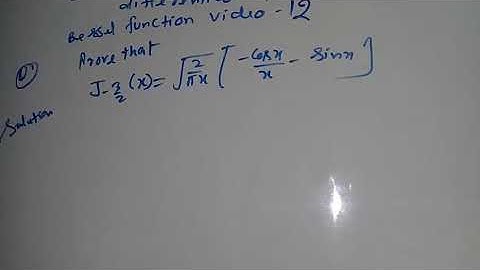 Bessel function video - 12
Q1 Prove that
J-3/2(x) = √2/πx [ -cosx/x - sinx ]
Solution